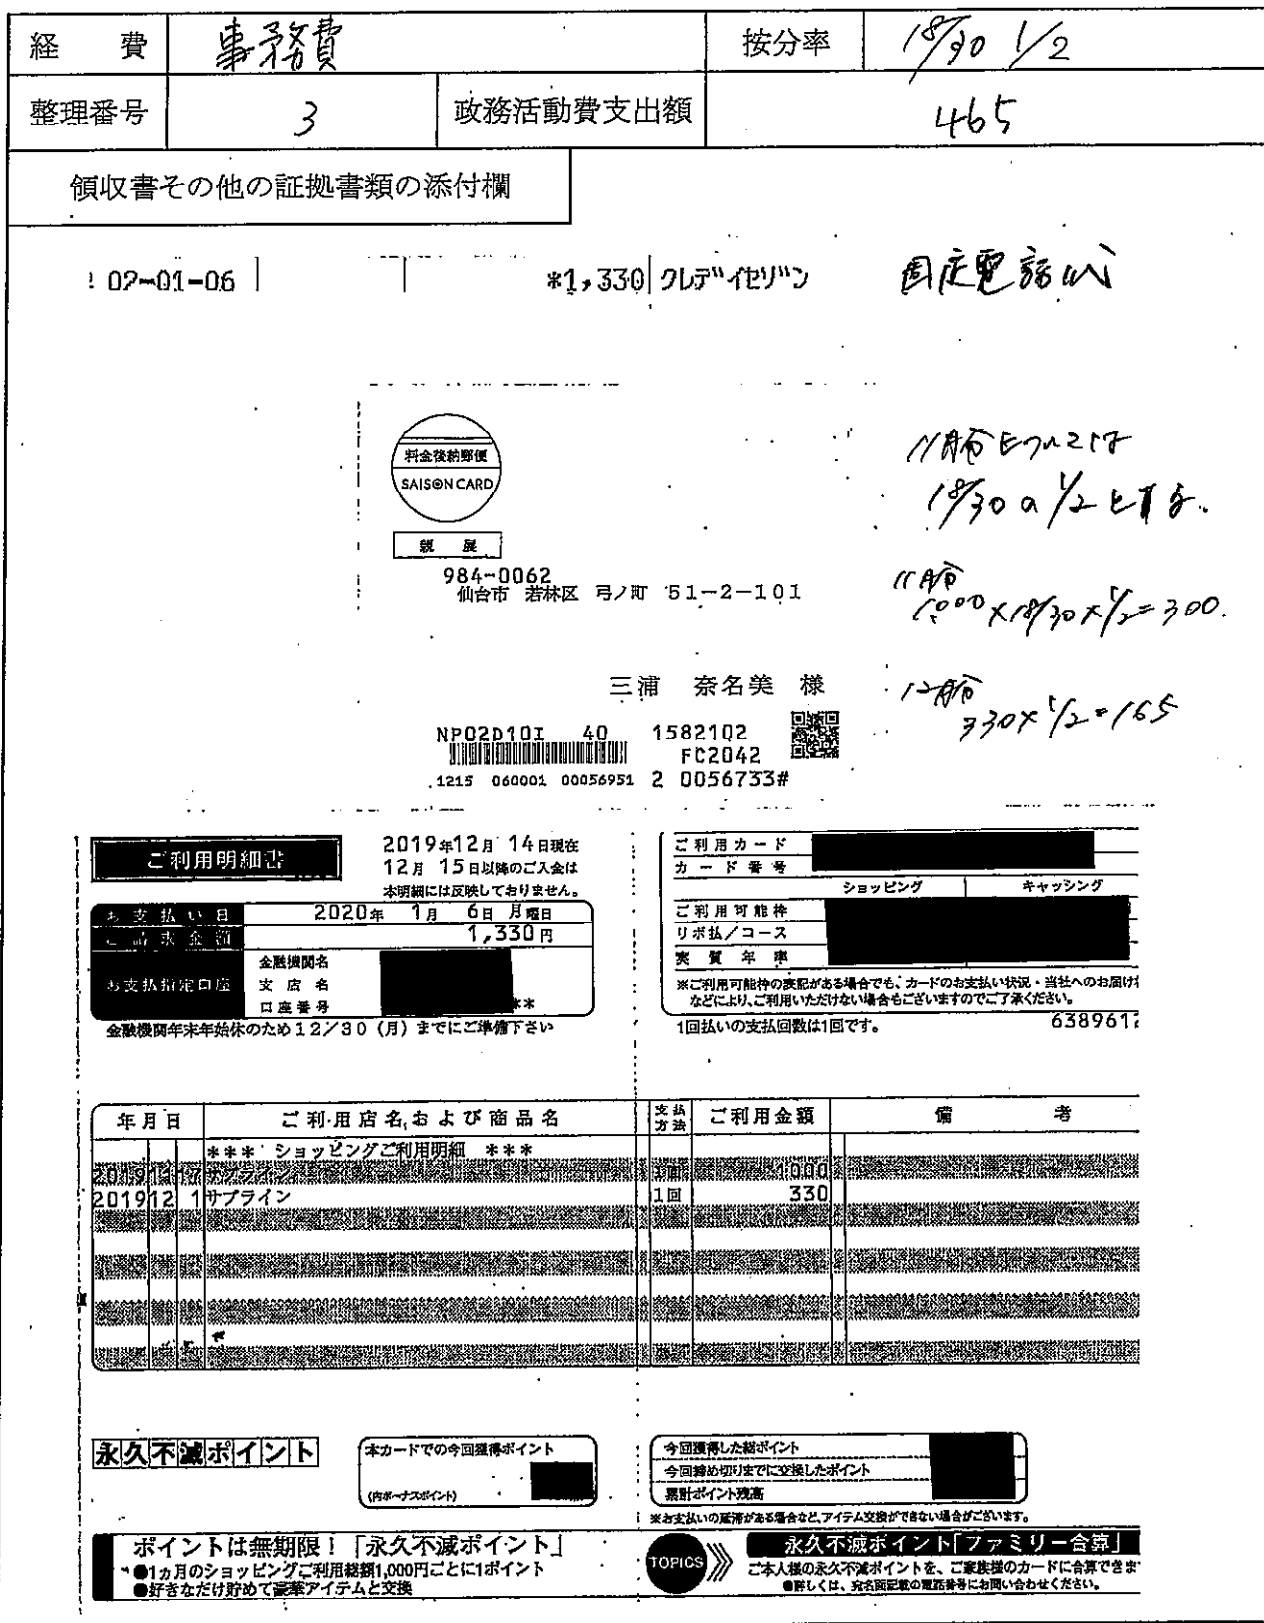 経 費 事務費 按分率 18/30 1/2
整理番号 3 政務活動費支出額 465
領収書その他の証拠書類の添付欄
02-01-06 *1,330 クレデイセゾン 固定電話代
料金後納郵便
SAISON CARD
親 展
984-0062
仙台市 若林区 弓ノ町 51-2-101
三浦 奈名美 様
NP02D10I 40 1582102
FC2042
1215 060001 00056951 2 0056733#
11月分については
18/30の1/2とする.
11月分
1000×18/30×1/2=300.
12月分
330×1/2=165
ご利用明細書
2019年12月14日現在
12月 15日以降のご入金は
本明細には反映しておりません。
お支払い日 2020年 1月 6日 月曜日
ご請求金額 1,330円
お支払指定口座
金融機関名
支店名
口座番号 **
金融機関年末年始休のため12/30(月)までにご準備下さい
ご利用カード
カード番号
ショッピング キャッシング
ご利用可能枠
リボ払/コース
実質年率
※ご利用可能枠の表記がある場合でも、カードのお支払い状況・当社へのお届け
などにより、ご利用いただけない場合もございますのでご了承ください。
1回払いの支払回数は1回です。 6389612
年月日 ご利用店名および商品名 支払方法 ご利用金額 備 考
*** ショッピングご利用明細 ***
サブライン 1回 1000
2019 12 1 サブライン 1回 330
永久不滅ポイント
本カードでの今回獲得ポイント
(内ボーナスポイント)
今回獲得した総ポイント
今回締め切りまでに交換したポイント
累計ポイント残高
※お支払いの延滞がある場合など、アイテム交換ができない場合がございます。
ポイントは無期限!「永久不滅ポイント」
●1ヵ月のショッピングご利用総額1,000円ごとに1ポイント
●好きなだけ貯めて豪華アイテムと交換
TOPICS
永久不滅ポイント「ファミリー合算」
ご本人様の永久不滅ポイントを、ご家族様のカードに合算できま
●詳しくは、宛名面記載の電話番号にお問い合わせください。